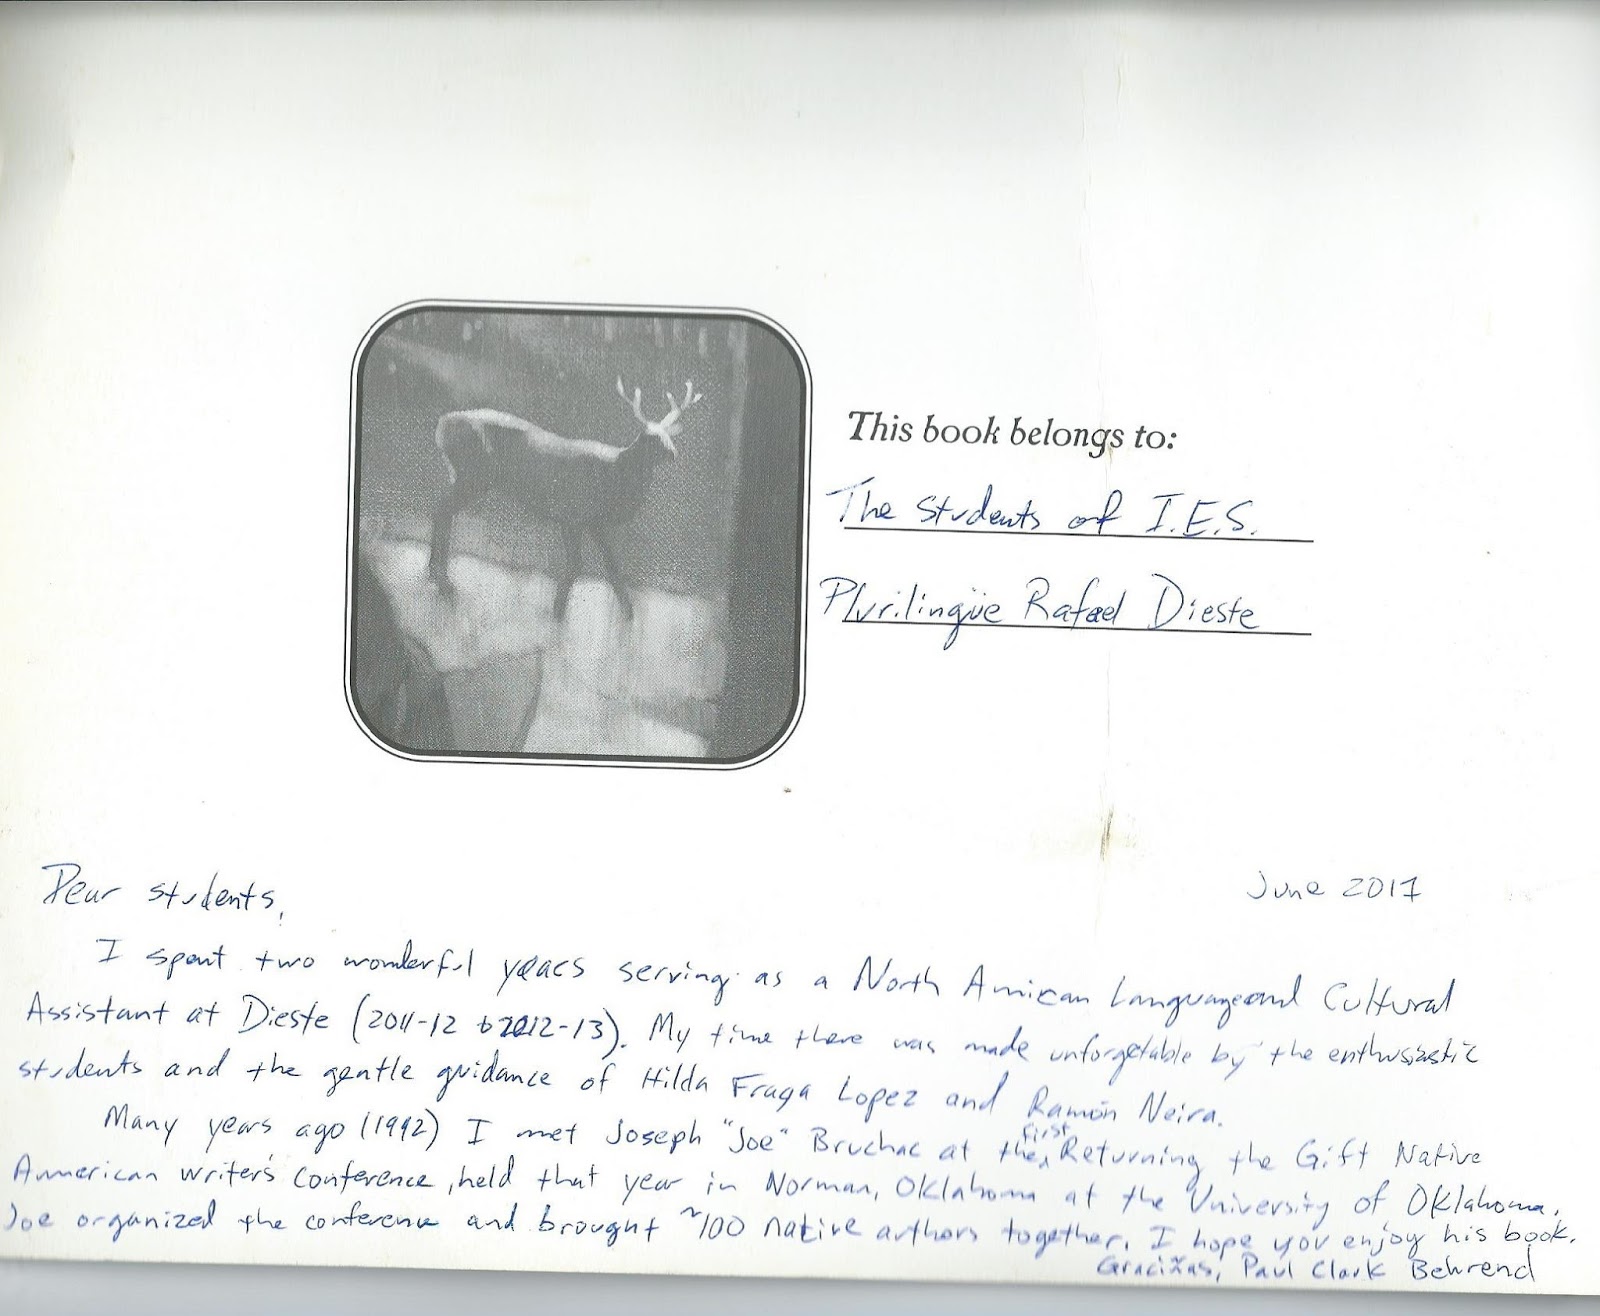 This book belongs to:
The students of I.E.S.
Plurilingüe Rafael Dieste
June 2017
Dear students,
I spent two wonderful years serving as a North Amican Language and Cultural
Assistant at Dieste (2011-12 to 2012-13). My time there was made unforgetable by the enthusiastic
students and the gentle guidance of Hilda Fraga Lopez and Ramón Neira.
Many years ago (1992) I met Joseph "Joe" Bruchac at the first Returning the Gift Native
American Writer's Conference, held that year in Norman, Oklahoma at the University of Oklahoma.
Joe organized the conference and brought ~100 native authors together. I hope you enjoy his book.
Graciñas, Paul Clark Behrend